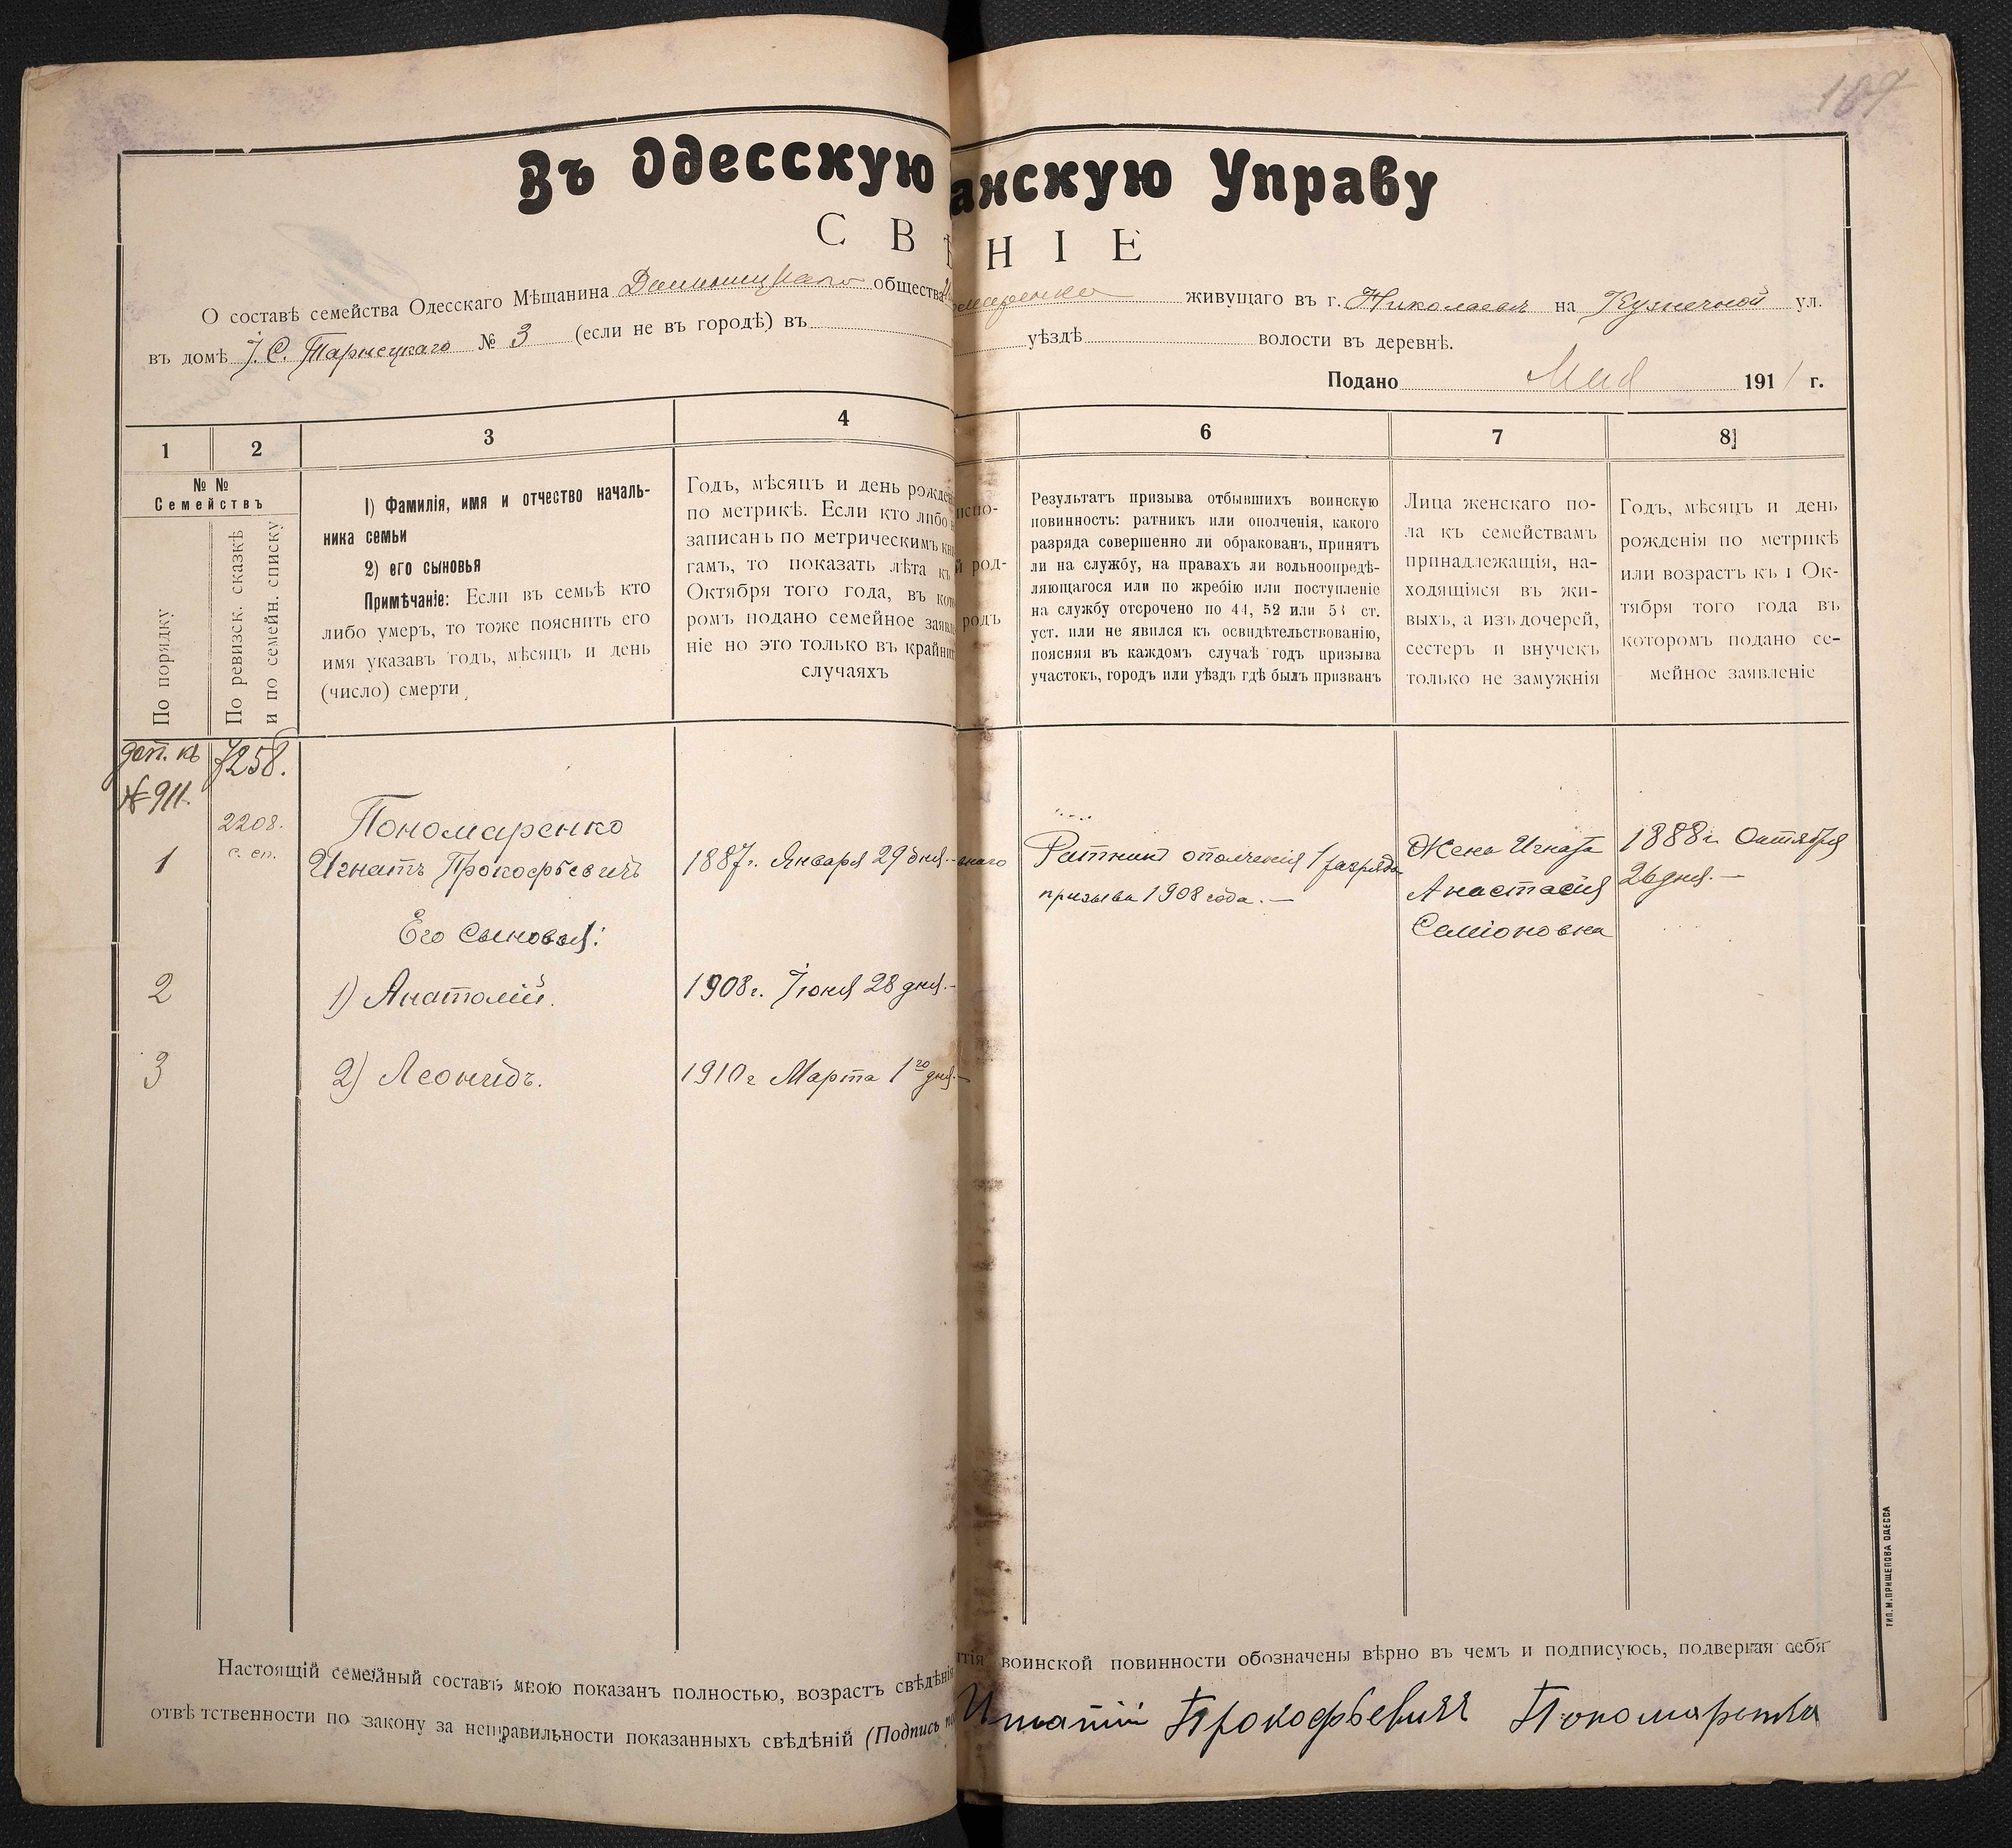 109
Въ Одесскую анскую Управу
СВѢНІЕ
О составѣ семейства Одесскаго Мѣщанина общества живущаго въ г. Николаевѣ на Кузнечной ул.
въ домѣ І. С. Тарнецкаго № 3 (если не въ городѣ) въ уѣздѣ волости въ деревнѣ.
Подано Мая 1911 г.
1 2 3 4 6 7 8
№ №
Семействъ
По порядку
По ревизск. сказкѣ
и по семейн. списку
1) Фамилія, имя и отчество началь-
ника семьи
2) его сыновья
Примѣчаніе: Если въ семьѣ кто
либо умеръ, то тоже пояснить его
имя указавъ годъ, мѣсяцъ и день
(число) смерти
Годъ, мѣсяцъ и день рожде
по метрикѣ. Если кто либо
записанъ по метрическимъ
гамъ, то показать лѣта къ
Октября того года, въ ко
ромъ подано семейное заяв
ніе но это только въ крайни
случаяхъ
род-
родъ
Результатъ призыва отбывшихъ воинскую
повинность: ратникъ или ополченія, какого
разряда совершенно ли обракованъ, принятъ
ли на службу, на правахъ ли вольноопредѣ-
ляющагося или по жребію или поступленіе
на службу отсрочено по 44, 52 или 53 ст.
уст. или не явился къ освидѣтельствованію,
поясняя въ каждомъ случаѣ годъ призыва
участокъ, городъ или уѣздъ гдѣ былъ призванъ
Лица женскаго по-
ла къ семействамъ
принадлежащія, на-
ходящіяся въ жи-
выхъ, а изъ дочерей,
сестеръ и внучекъ
только не замужнія
Годъ, мѣсяцъ и день
рожденія по метрикѣ
или возрастъ къ 1 Ок-
тября того года въ
которомъ подано се-
мейное заявленіе
доп. къ 7258.
№ 911.
2208.
с. сп.
Пономаренко
1 Игнатъ Прокофьевичъ 1887 г. Января 29 дня.-
Ратник ополченія 1 разряда
призыва 1908 года.-
Жена Игната
Анастасія
Семіоновна
1888 г. Октября
26 дня.-
Его сыновья:
2 1) Анатолій. 1908 г. Іюня 28 дня.-
3 2) Леонидъ. 1910 г Марта 1го дня.-
Настоящій семейный составъ мною показанъ полностью, возрастъ свѣдѣнія воинской повинности обозначены вѣрно въ чемъ и подписуюсь, подвергая себя
отвѣтственности по закону за неправильности показанныхъ свѣдѣній (Подпись Прокофьевичъ Пономаренко
ТИП. М. ПРИЩЕПОВА ОДЕССА